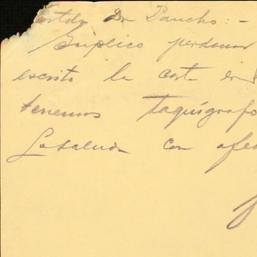 Dr Pancho:-
Suplico perdonar
escrito la
tenemos taquígrafo
Lo saluda con afe